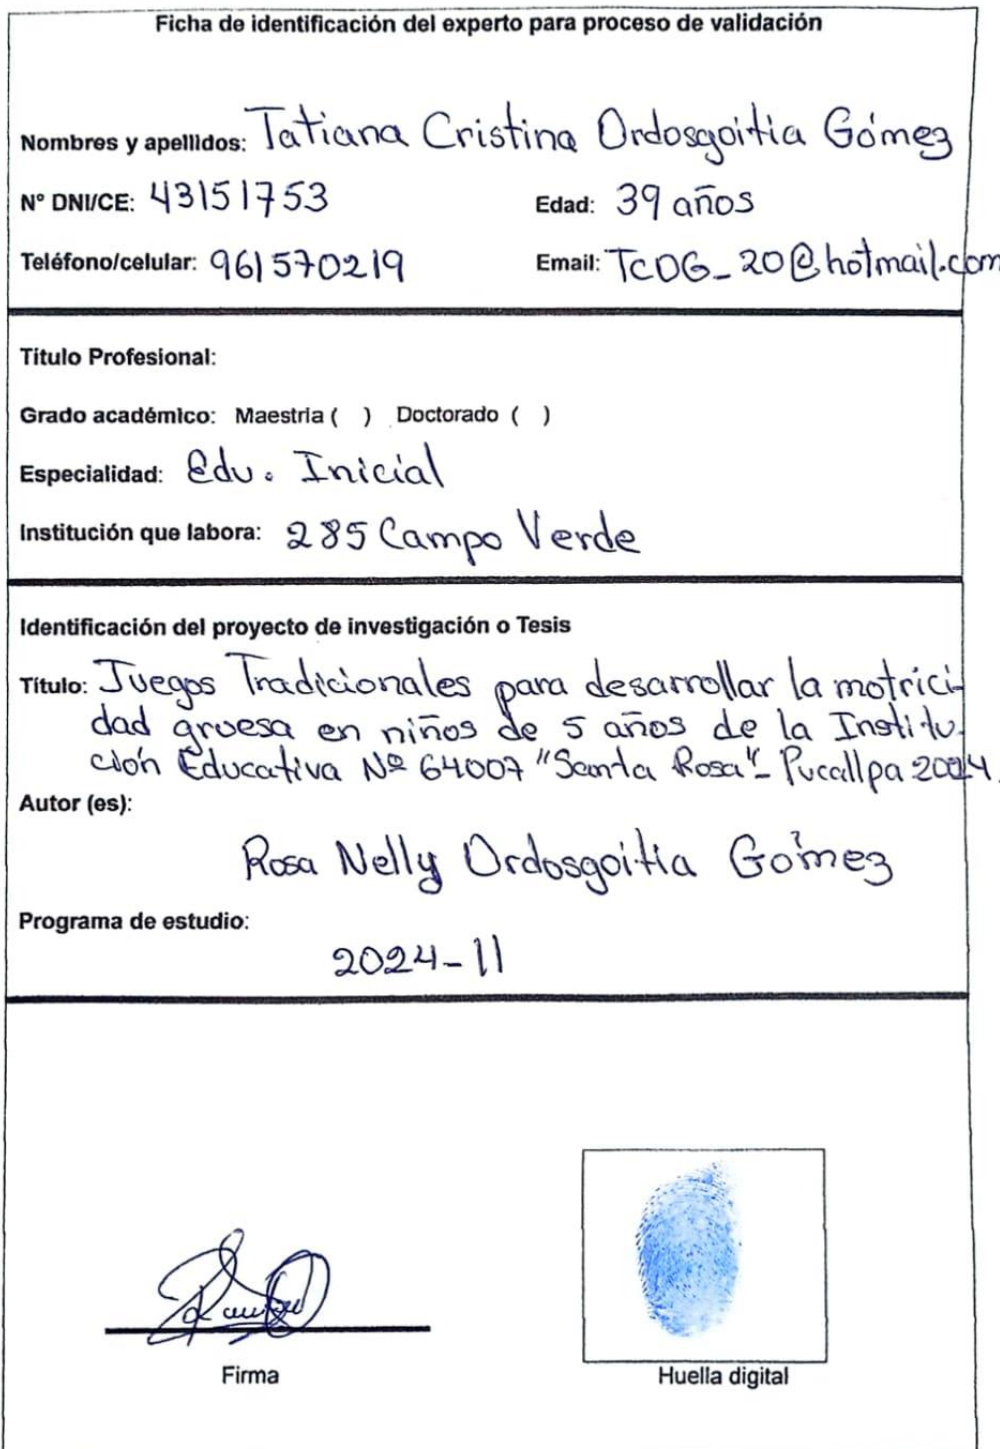 Ficha de identificación del experto para proceso de validación
Nombres y apellidos: Tatiana Cristina Ordosgoitia Gómez
N° DNI/CE: 43151753 Edad: 39 años
Teléfono/celular: 961570219 Email: TCOG_20@hotmail.com
Título Profesional:
Grado académico: Maestría ( ) Doctorado ( )
Especialidad: Edu. Inicial
Institución que labora: 285 Campo Verde
Identificación del proyecto de investigación o Tesis
Título: Juegos Tradicionales para desarrollar la motrici-
dad gruesa en niños de 5 años de la Institu-
ción Educativa Nº 64007 "Santa Rosa" - Pucallpa 2024.
Autor (es):
Rosa Nelly Ordosgoitia Gómez
Programa de estudio:
2024-II
Firma Huella digital